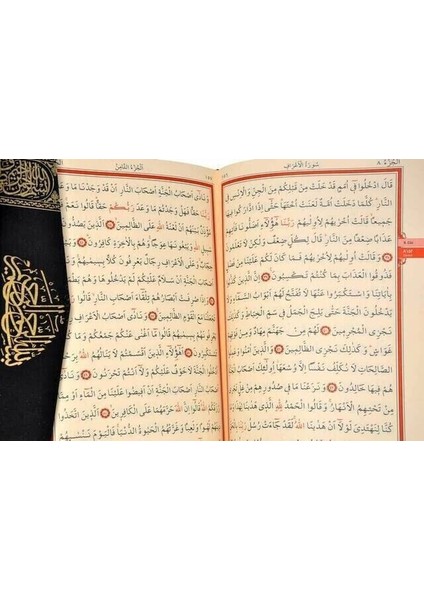 الجزء ٨
سُورَةُ الْأَعْرَافِ
قَالَ ادْخُلُوا فِي أُمَمٍ قَدْ خَلَتْ مِنْ قَبْلِكُمْ مِنَ الْجِنِّ وَالْإِنْسِ فِي
النَّارِ كُلَّمَا دَخَلَتْ أُمَّةٌ لَعَنَتْ أُخْتَهَا حَتَّى إِذَا ادَّارَكُوا فِيهَا
جَمِيعًا قَالَتْ أُخْرٰيهُمْ لِأُولٰيهُمْ رَبَّنَا هٰؤُلَاءِ أَضَلُّونَا فَآتِهِمْ
عَذَابًا ضِعْفًا مِنَ النَّارِ قَالَ لِكُلٍّ ضِعْفٌ وَلٰكِنْ لَا تَعْلَمُونَ
وَقَالَتْ أُولٰيهُمْ لِأُخْرٰيهُمْ فَمَا كَانَ لَكُمْ عَلَيْنَا مِنْ فَضْلٍ
فَذُوقُوا الْعَذَابَ بِمَا كُنْتُمْ تَكْسِبُونَ إِنَّ الَّذِينَ كَذَّبُوا
بِآيَاتِنَا وَاسْتَكْبَرُوا عَنْهَا لَا تُفَتَّحُ لَهُمْ أَبْوَابُ السَّمَاءِ وَلَا
يَدْخُلُونَ الْجَنَّةَ حَتَّى يَلِجَ الْجَمَلُ فِي سَمِّ الْخِيَاطِ وَكَذٰلِكَ
نَجْزِي الْمُجْرِمِينَ لَهُمْ مِنْ جَهَنَّمَ مِهَادٌ وَمِنْ فَوْقِهِمْ
غَوَاشٍ وَكَذٰلِكَ نَجْزِي الظَّالِمِينَ وَالَّذِينَ آمَنُوا وَعَمِلُوا
الصَّالِحَاتِ لَا نُكَلِّفُ نَفْسًا إِلَّا وُسْعَهَا أُولٰئِكَ أَصْحَابُ الْجَنَّةِ
هُمْ فِيهَا خَالِدُونَ وَنَزَعْنَا مَا فِي صُدُورِهِمْ مِنْ غِلٍّ تَجْرِي
مِنْ تَحْتِهِمُ الْأَنْهَارُ وَقَالُوا الْحَمْدُ لِلّٰهِ الَّذِي هَدٰينَا لِهٰذَا وَمَا
كُنَّا لِنَهْتَدِيَ لَوْلَا أَنْ هَدٰينَا اللّٰهُ لَقَدْ جَاءَتْ رُسُلُ
الْجُزْءُ الثَّامِنُ
وَنَادٰى أَصْحَابُ الْجَنَّةِ أَصْحَابَ النَّارِ أَنْ قَدْ وَجَدْنَا مَا وَعَدَنَا
رَبُّنَا حَقًّا فَهَلْ وَجَدْتُمْ مَا وَعَدَ رَبُّكُمْ حَقًّا قَالُوا نَعَمْ
اللّٰهِ عَلَى الظَّالِمِينَ الَّذِينَ يَصُدُّونَ
اللّٰهِ وَيَبْغُونَهَا عِوَجًا وَهُمْ بِالْآخِرَةِ كَافِرُونَ
وَعَلَى الْأَعْرَافِ رِجَالٌ يَعْرِفُونَ كُلًّا بِسِيمٰيهُمْ
أَصْحَابَ الْجَنَّةِ أَنْ سَلَامٌ عَلَيْكُمْ لَمْ يَدْخُلُوهَا وَهُمْ يَطْمَعُونَ
وَإِذَا صُرِفَتْ أَبْصَارُهُمْ تِلْقَاءَ أَصْحَابِ النَّارِ قَالُوا
تَجْعَلْنَا مَعَ الْقَوْمِ الظَّالِمِينَ وَنَادٰى أَصْحَابُ الْأَعْرَافِ
يَعْرِفُونَهُمْ بِسِيمٰيهُمْ قَالُوا مَا أَغْنٰى عَنْكُمْ جَمْعُكُمْ وَمَا
تَسْتَكْبِرُونَ أَهٰؤُلَاءِ الَّذِينَ أَقْسَمْتُمْ لَا يَنَالُهُمُ اللّٰهُ
عَلَيْكُمْ وَلَا أَنْتُمْ تَحْزَنُونَ
أَصْحَابَ الْجَنَّةِ أَنْ أَفِيضُوا عَلَيْنَا مِنَ الْمَاءِ أَوْ مِمَّا
اللّٰهُ قَالُوا إِنَّ اللّٰهَ حَرَّمَهُمَا عَلَى الْكَافِرِينَ الَّذِينَ اتَّخَذُوا
لَهْوًا وَلَعِبًا وَغَرَّتْهُمُ الْحَيٰوةُ الدُّنْيَا فَالْيَوْمَ نَنْسٰيهُمْ